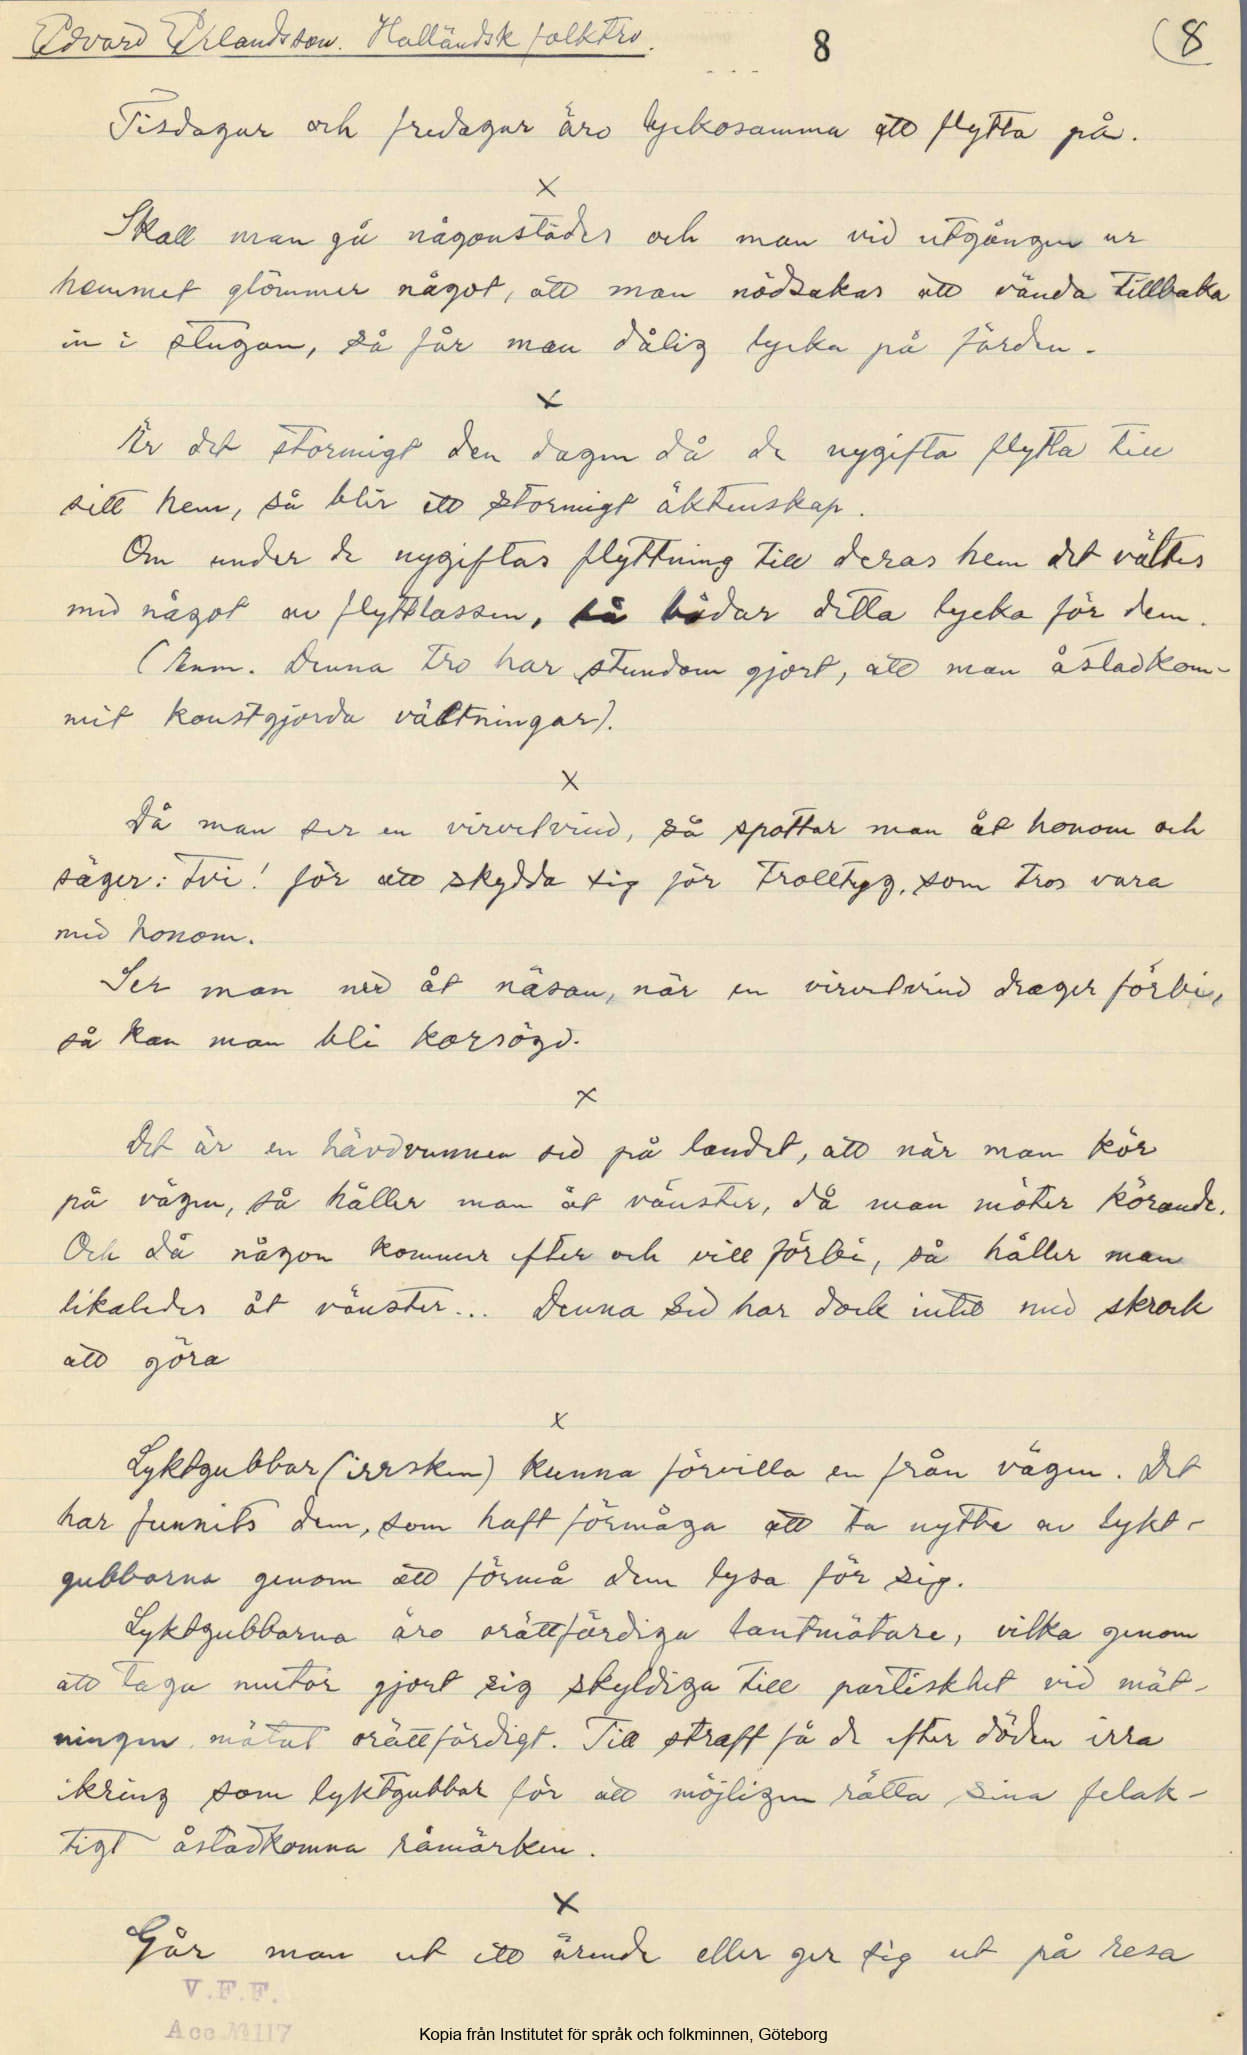 Edvard Erlandsson. Halländsk folktro.
8
(8
Tisdagar och fredagar äro lyckosamma att flytta på.
x
Skall man gå någonstädes och man vid utgången ur
hemmet glömmer något, att man nödsakas att vända tillbaka
in i stugan, så får man dålig lycka på färden.
x
Är det stormigt den dagen då de nygifta flytta till
sitt hem, så blir ett stormigt äktenskap.
Om under de nygiftas flyttning till deras hem det vältes
med något av flyttlassen, så bådar detta lycka för dem.
(Anm. Denna tro har stundom gjort, att man åstadkom-
mit konstgjorda vältningar).
x
Då man ser en virvelvind, så spottar man åt honom och
säger: tvi! för att skydda sig för trolltyg, som tros vara
med honom.
Ser man ned åt näsan, när en virvelvind drager förbi,
så kan man bli korsögd.
x
Det är en hävdvunnen sed på landet, att när man kör
på vägen, så håller man åt vänster, då man möter körande.
Och då någon kommer efter och vill förbi, så håller man
likaledes åt vänster... Denna sed har dock intet med skrock
att göra
x
Lyktgubbar (irrsken) kunna förvilla en från vägen. Det
har funnits dem, som haft förmåga att ta nytta av lykt-
gubbarna genom att förmå dem lysa för sig.
Lyktgubbarna äro orättfärdiga lantmätare, vilka genom
att taga mutor gjort sig skyldiga till partiskhet vid mät-
ningen, mätat orättfärdigt. Till straff få de efter döden irra
ikring som lyktgubbar för att möjligen rätta sina felak-
tigt åstadkomna råmärken.
x
Går man ut ett ärende eller ger sig ut på resa
V.F.F.
Acc. № 117
Kopia från Institutet för språk och folkminnen, Göteborg